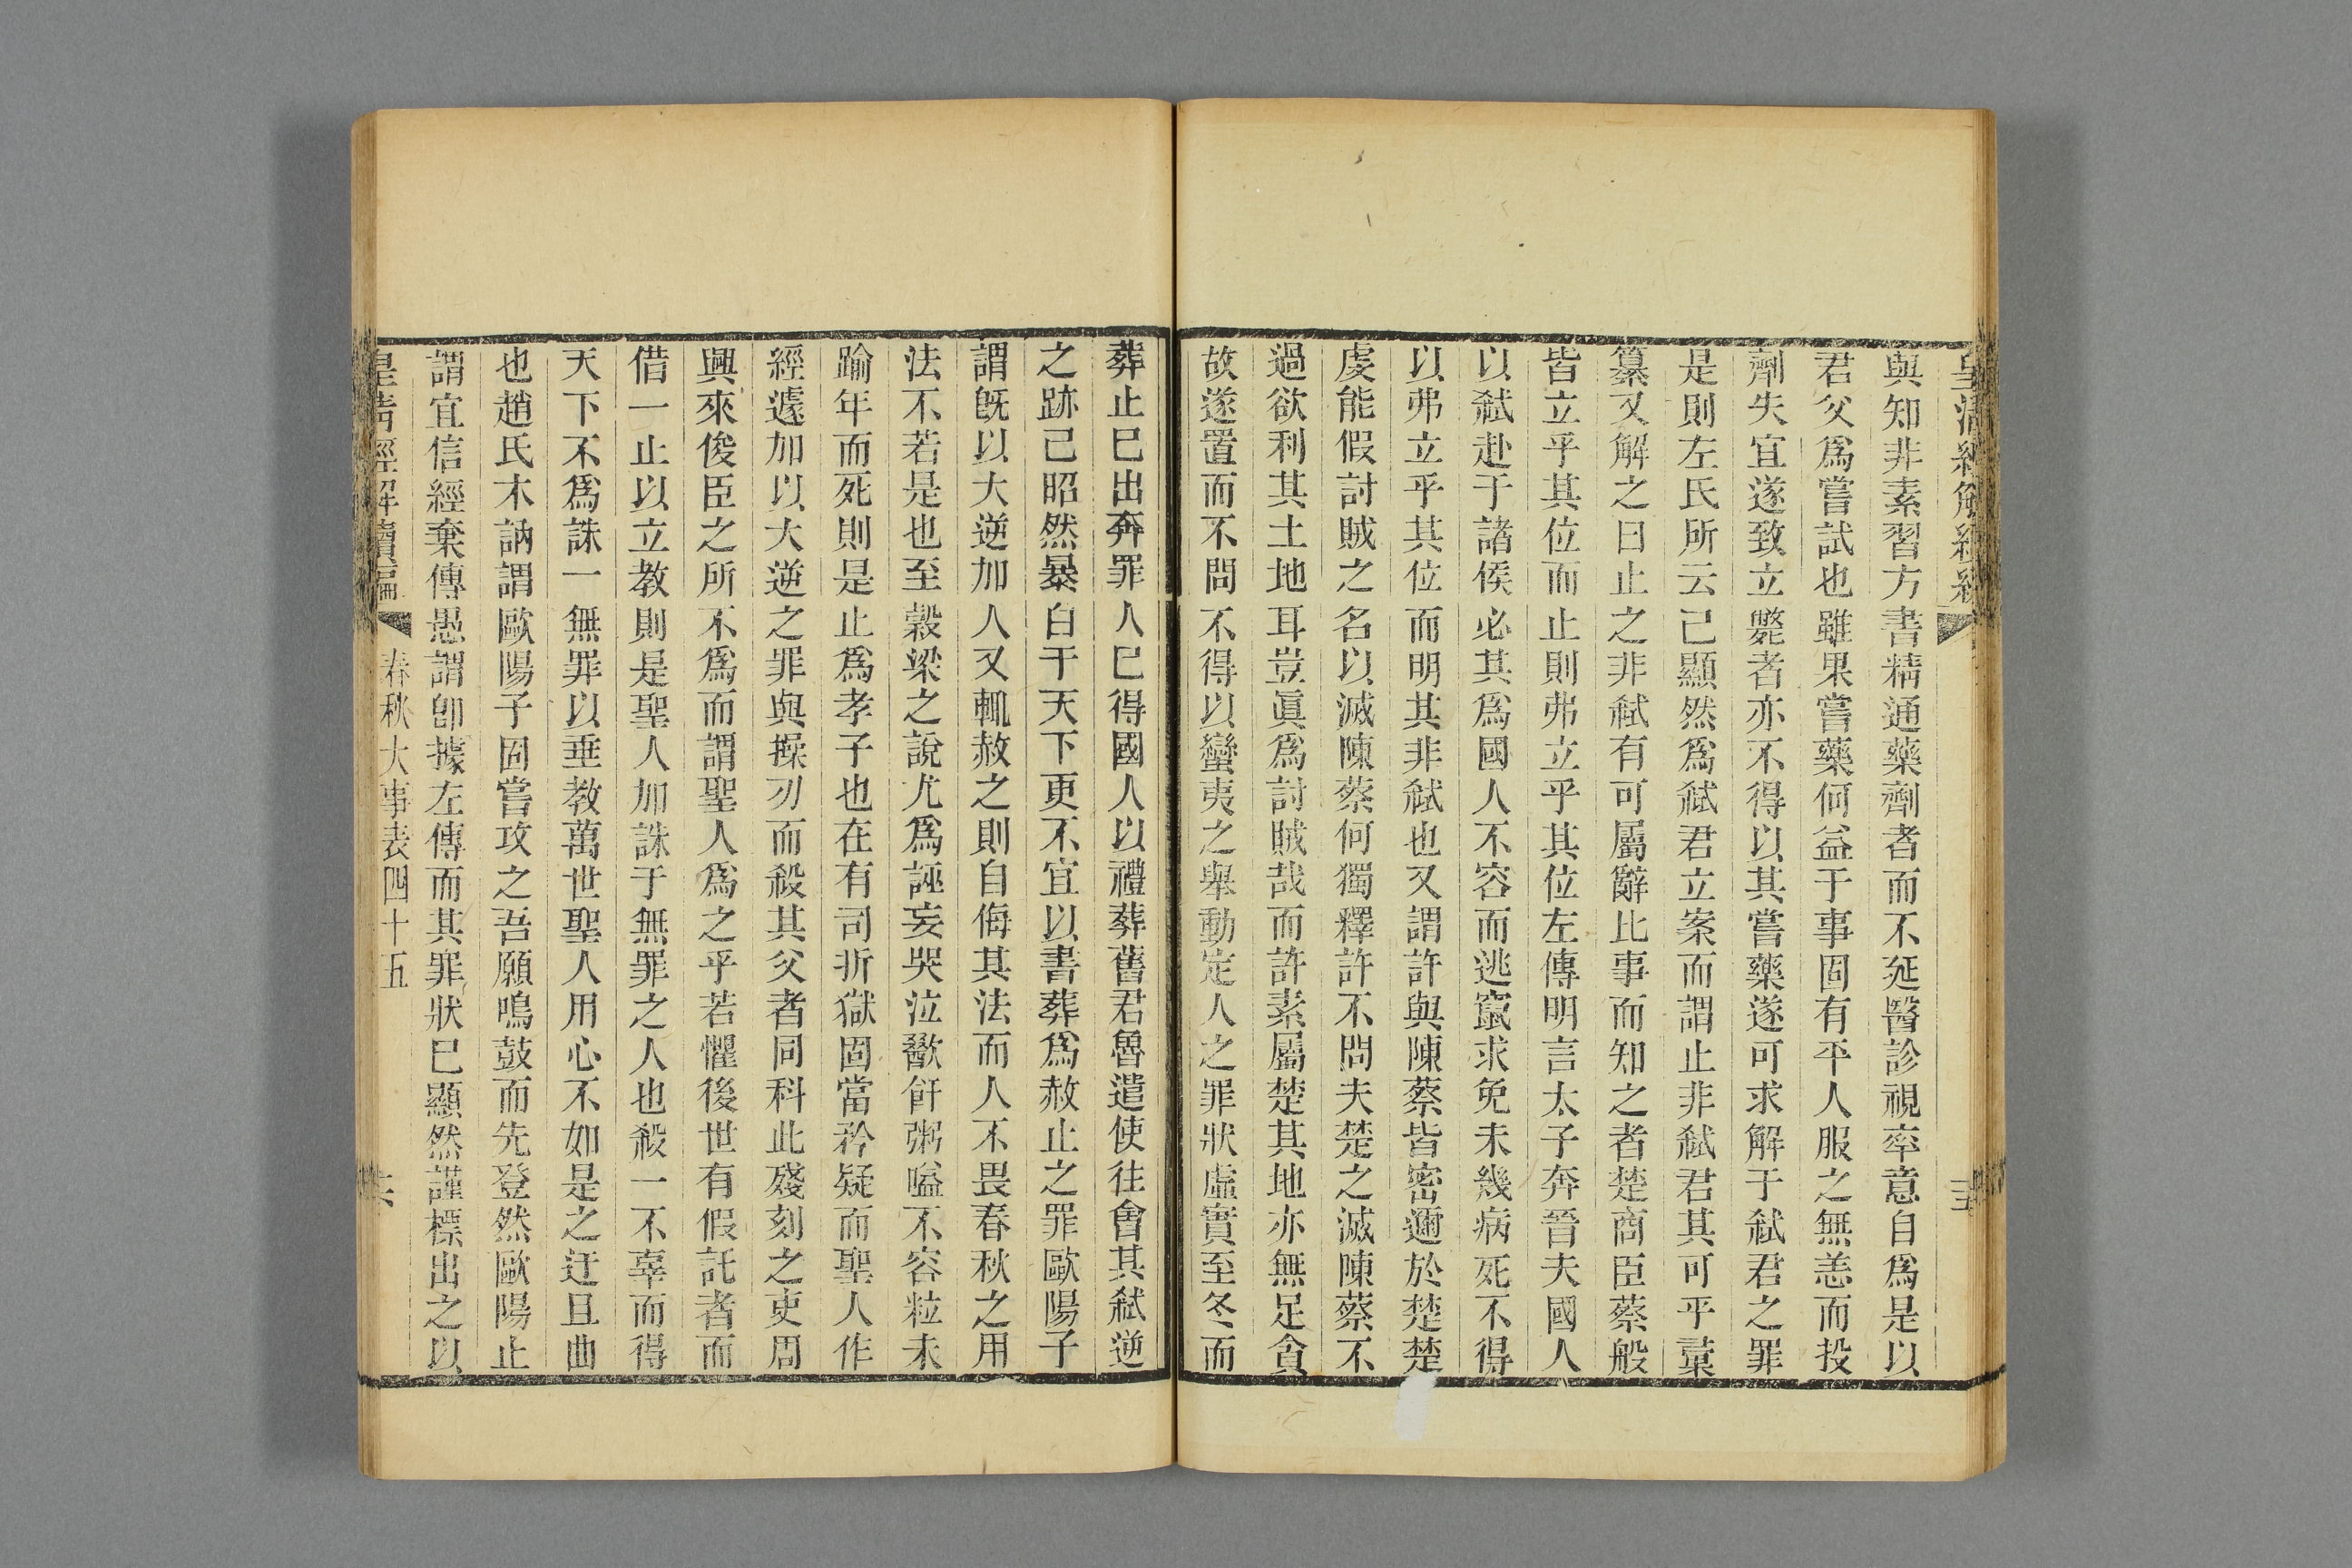 皇清經解續編
與知非素習方書精通藥劑者而不延醫診視率意自爲是以
君父爲嘗試也雖果嘗藥何益于事固有平人服之無恙而投
劑失宜遂致立斃者亦不得以其嘗藥遂可求解于弒君之罪
是則左氏所云已顯然爲弒君立案而謂止非弒君其可乎彙
纂又解之曰止之非弒有可屬辭比事而知之者楚商臣蔡般
皆立乎其位而止則弗立乎其位左傳明言太子奔晉夫國人
以弒赴于諸侯必其爲國人不容而逃竄求免未幾病死不得
以弗立乎其位而明其非弒也又謂許與陳蔡皆密邇於楚楚
虔能假討賊之名以滅陳蔡何獨釋許不問夫楚之滅陳蔡不
過欲利其土地耳豈眞爲討賊哉而許素屬楚其地亦無足貪
故遂置而不問不得以蠻夷之舉動定人之罪狀虛實至冬而
葬止已出奔罪人已得國人以禮葬舊君魯遣使往會其弒逆
之跡已昭然暴白于天下更不宜以書葬爲赦止之罪歐陽子
謂旣以大逆加人又輒赦之則自侮其法而人不畏春秋之用
法不若是也至穀梁之說尤爲誣妄哭泣歠飦粥嗌不容粒未
踰年而死則是止爲孝子也在有司折獄固當矜疑而聖人作
經遽加以大逆之罪與操刃而殺其父者同科此殘刻之吏周
興來俊臣之所不爲而謂聖人爲之乎若懼後世有假託者而
借一止以立教則是聖人加誅于無罪之人也殺一不辜而得
天下不爲誅一無罪以垂教萬世聖人用心不如是之迂且曲
也趙氏木訥謂歐陽子固嘗攻之吾願鳴鼓而先登然歐陽止
謂宜信經棄傳愚謂卽據左傳而其罪狀已顯然謹標出之以
皇清經解續編 春秋大事表四十五